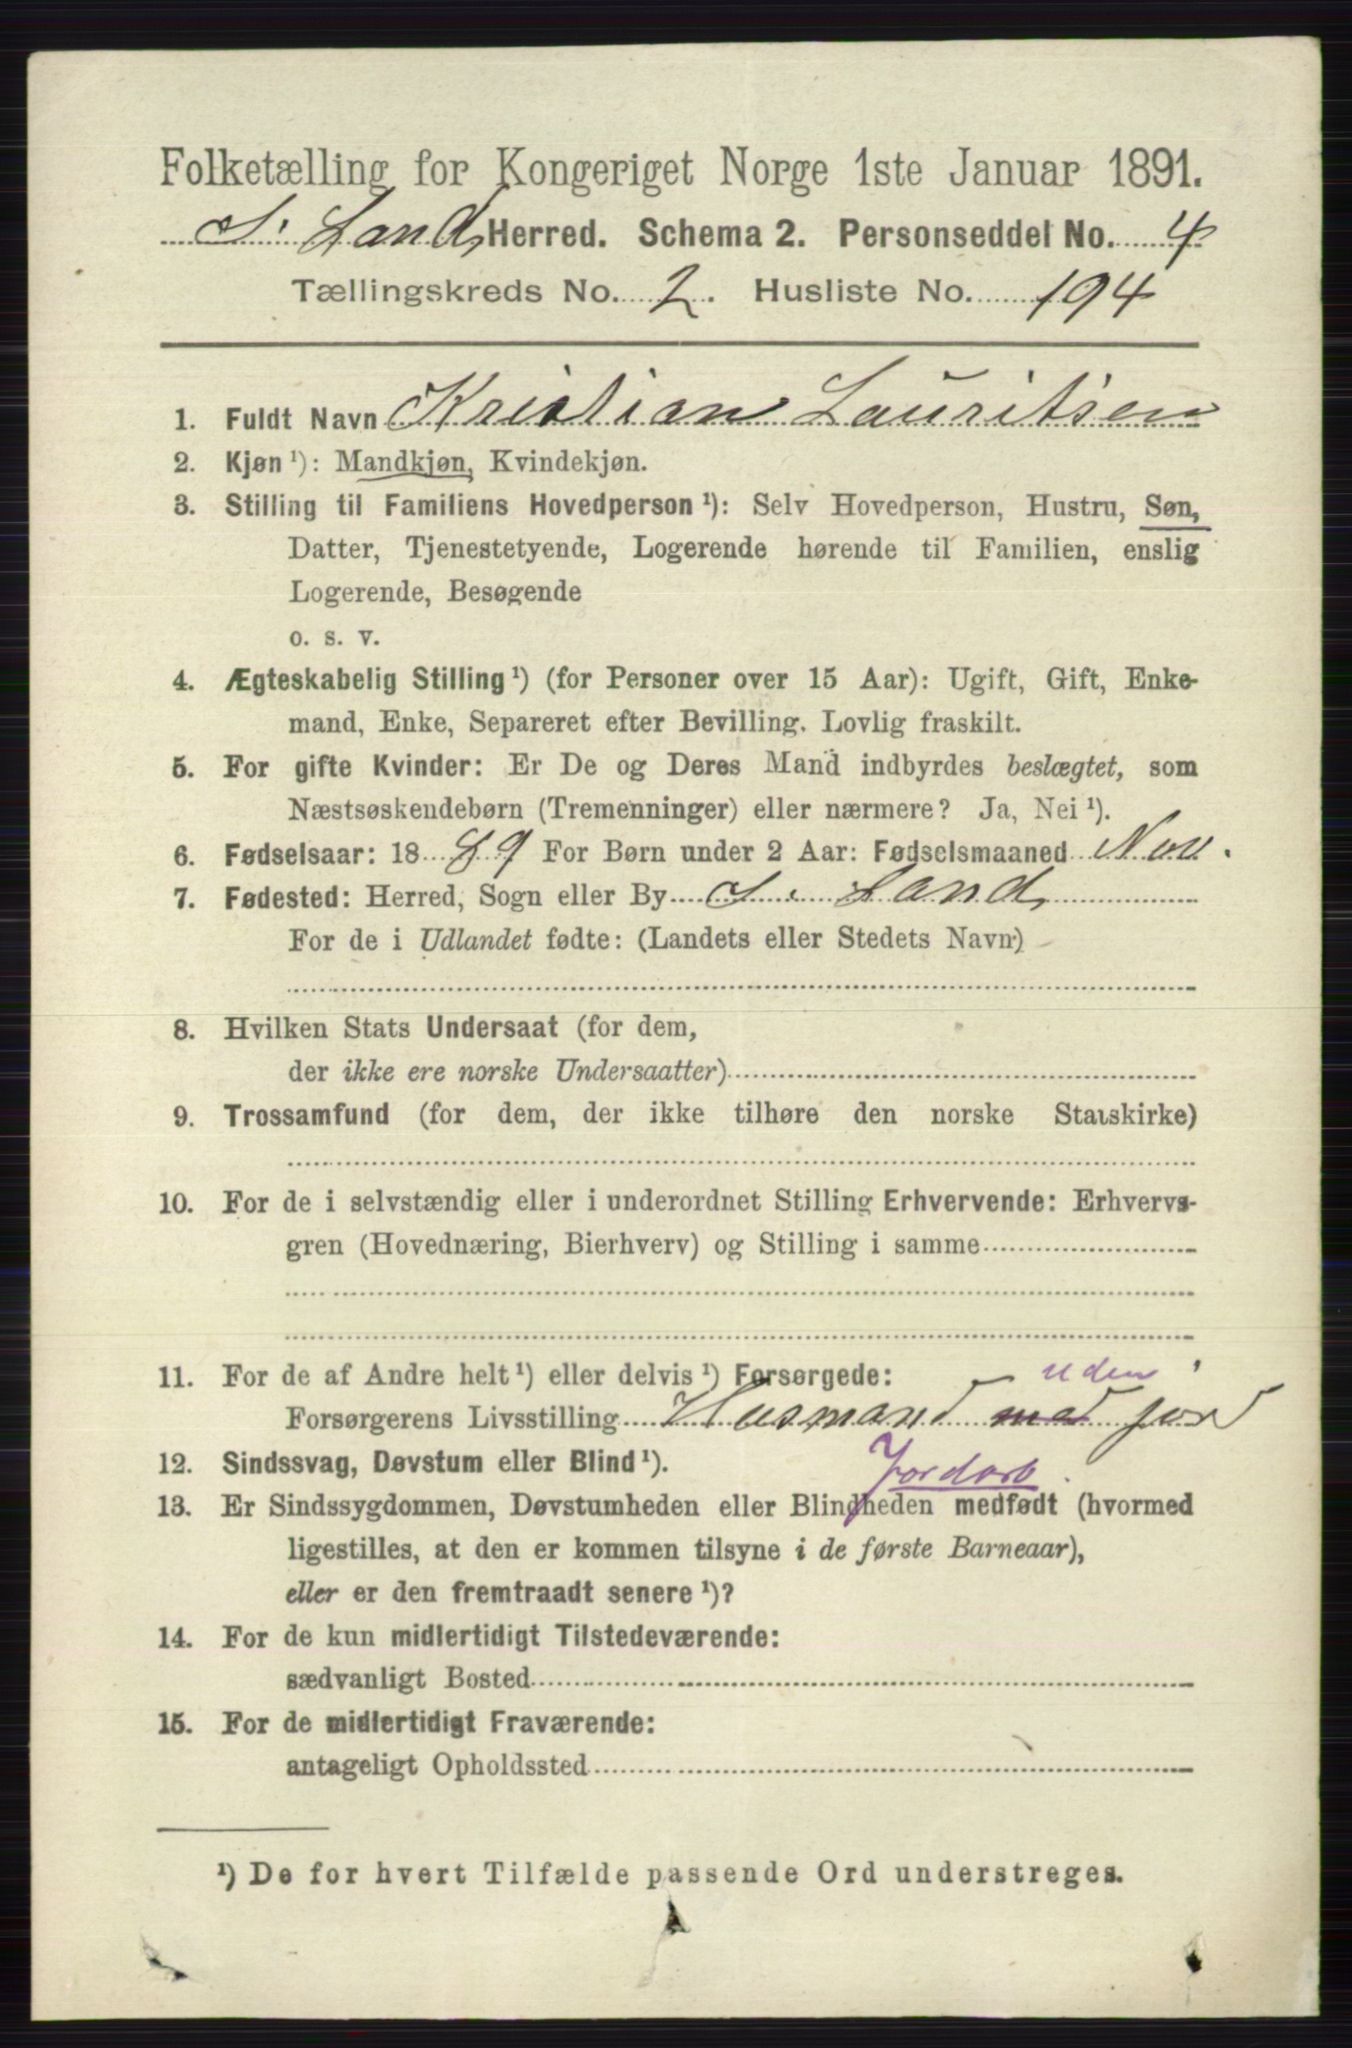 Folketælling for Kongeriget Norge 1ste Januar 1891.
S. Land Herred. Schema 2. Personseddel No. 4
Tællingskreds No. 2. Husliste No. 194
1. Fuldt Navn Kristian Lauritsen
2. Kjøn ¹): Mandkjøn, Kvindekjøn.
3. Stilling til Familiens Hovedperson ¹): Selv Hovedperson, Hustru, Søn,
Datter, Tjenestetyende, Logerende hørende til Familien, enslig
Logerende, Besøgende
o. s. v.
4. Ægteskabelig Stilling ¹) (for Personer over 15 Aar): Ugift, Gift, Enke-
mand, Enke, Separeret efter Bevilling. Lovlig fraskilt.
5. For gifte Kvinder: Er De og Deres Mand indbyrdes beslægtet, som
Næstsøskendebørn (Tremenninger) eller nærmere? Ja, Nei ¹).
6. Fødselsaar: 18 89 For Børn under 2 Aar: Fødselsmaaned Nov.
7. Fødested: Herred, Sogn eller By S. Land,
For de i Udlandet fødte: (Landets eller Stedets Navn)
8. Hvilken Stats Undersaat (for dem,
der ikke ere norske Undersaatter)
9. Trossamfund (for dem, der ikke tilhøre den norske Statskirke)
10. For de i selvstændig eller i underordnet Stilling Erhvervende: Erhvervs-
gren (Hovednæring, Bierhverv) og Stilling i samme
11. For de af Andre helt ¹) eller delvis ¹) Forsørgede:
uden
Forsørgerens Livsstilling Husmand med jord
Jordarb.
12. Sindssvag, Døvstum eller Blind ¹).
13. Er Sindssygdommen, Døvstumheden eller Blindheden medfødt (hvormed
ligestilles, at den er kommen tilsyne i de første Barneaar),
eller er den fremtraadt senere ¹)?
14. For de kun midlertidigt Tilstedeværende:
sædvanligt Bosted
15. For de midlertidigt Fraværende:
antageligt Opholdssted
¹) De for hvert Tilfælde passende Ord understreges.